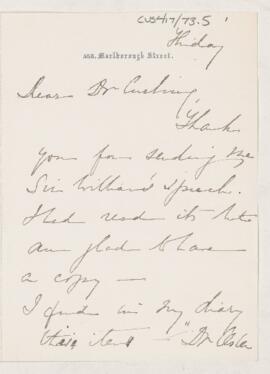 CUS417/73.5
Friday
Marlborough Street.
Dear Dr Cushing,
Thank
you for sending me
Sir William's speech.
I had read it but
am glad to have
a copy —
I find in my diary
this item — "Dr Osler